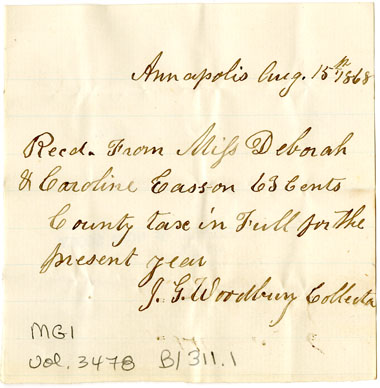 Annapolis Aug. 15th 1868
Recd. From Miss Deborah
& Caroline Easson 63 Cents
County taxe in Full for the
present year
J. G. Woodbury Collector
MG1
vol. 3478 B/311.1